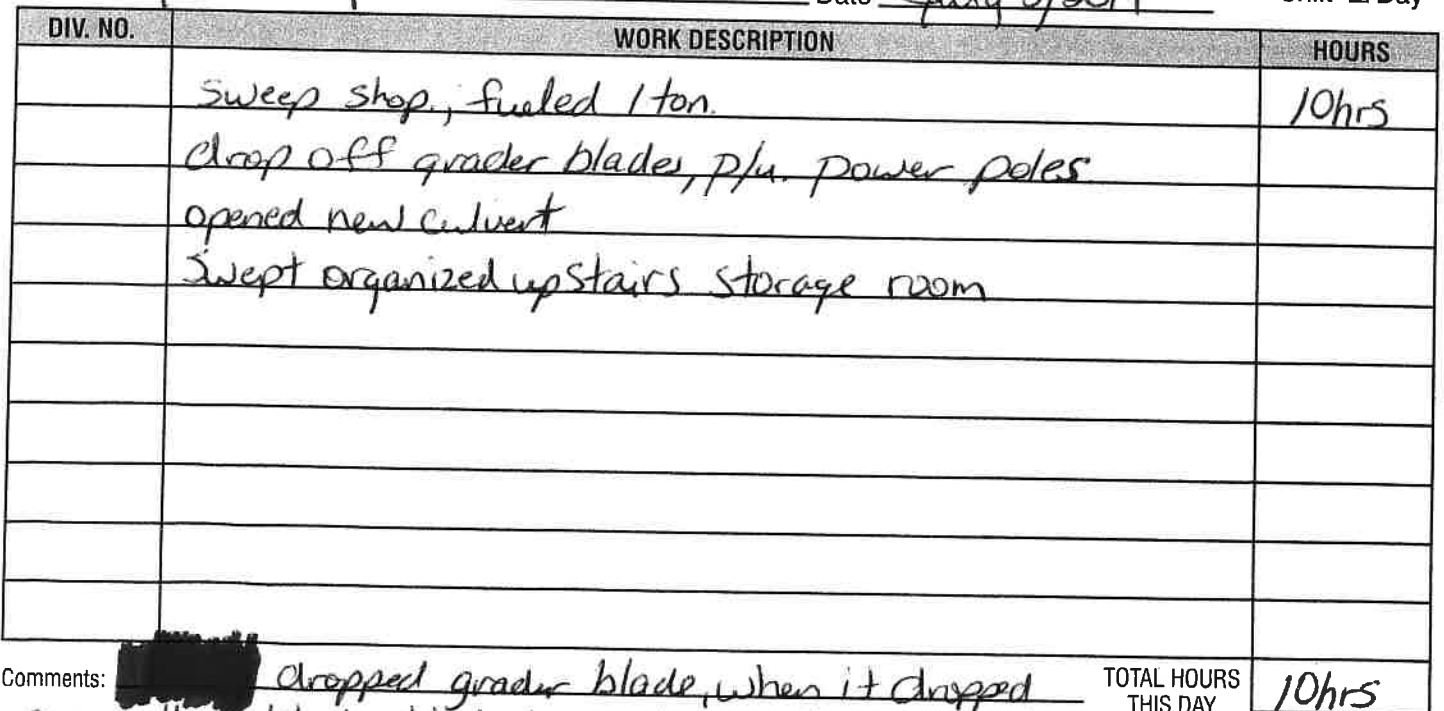 Date
Day
DIV. NO. WORK DESCRIPTION HOURS
Sweep shop., fueled 1 ton. 10hrs
drop off grader blades, p/u. power poles
opened new culvert
Swept organized upstairs storage room
Comments: dropped grader blade, when it dropped TOTAL HOURS THIS DAY 10hrs